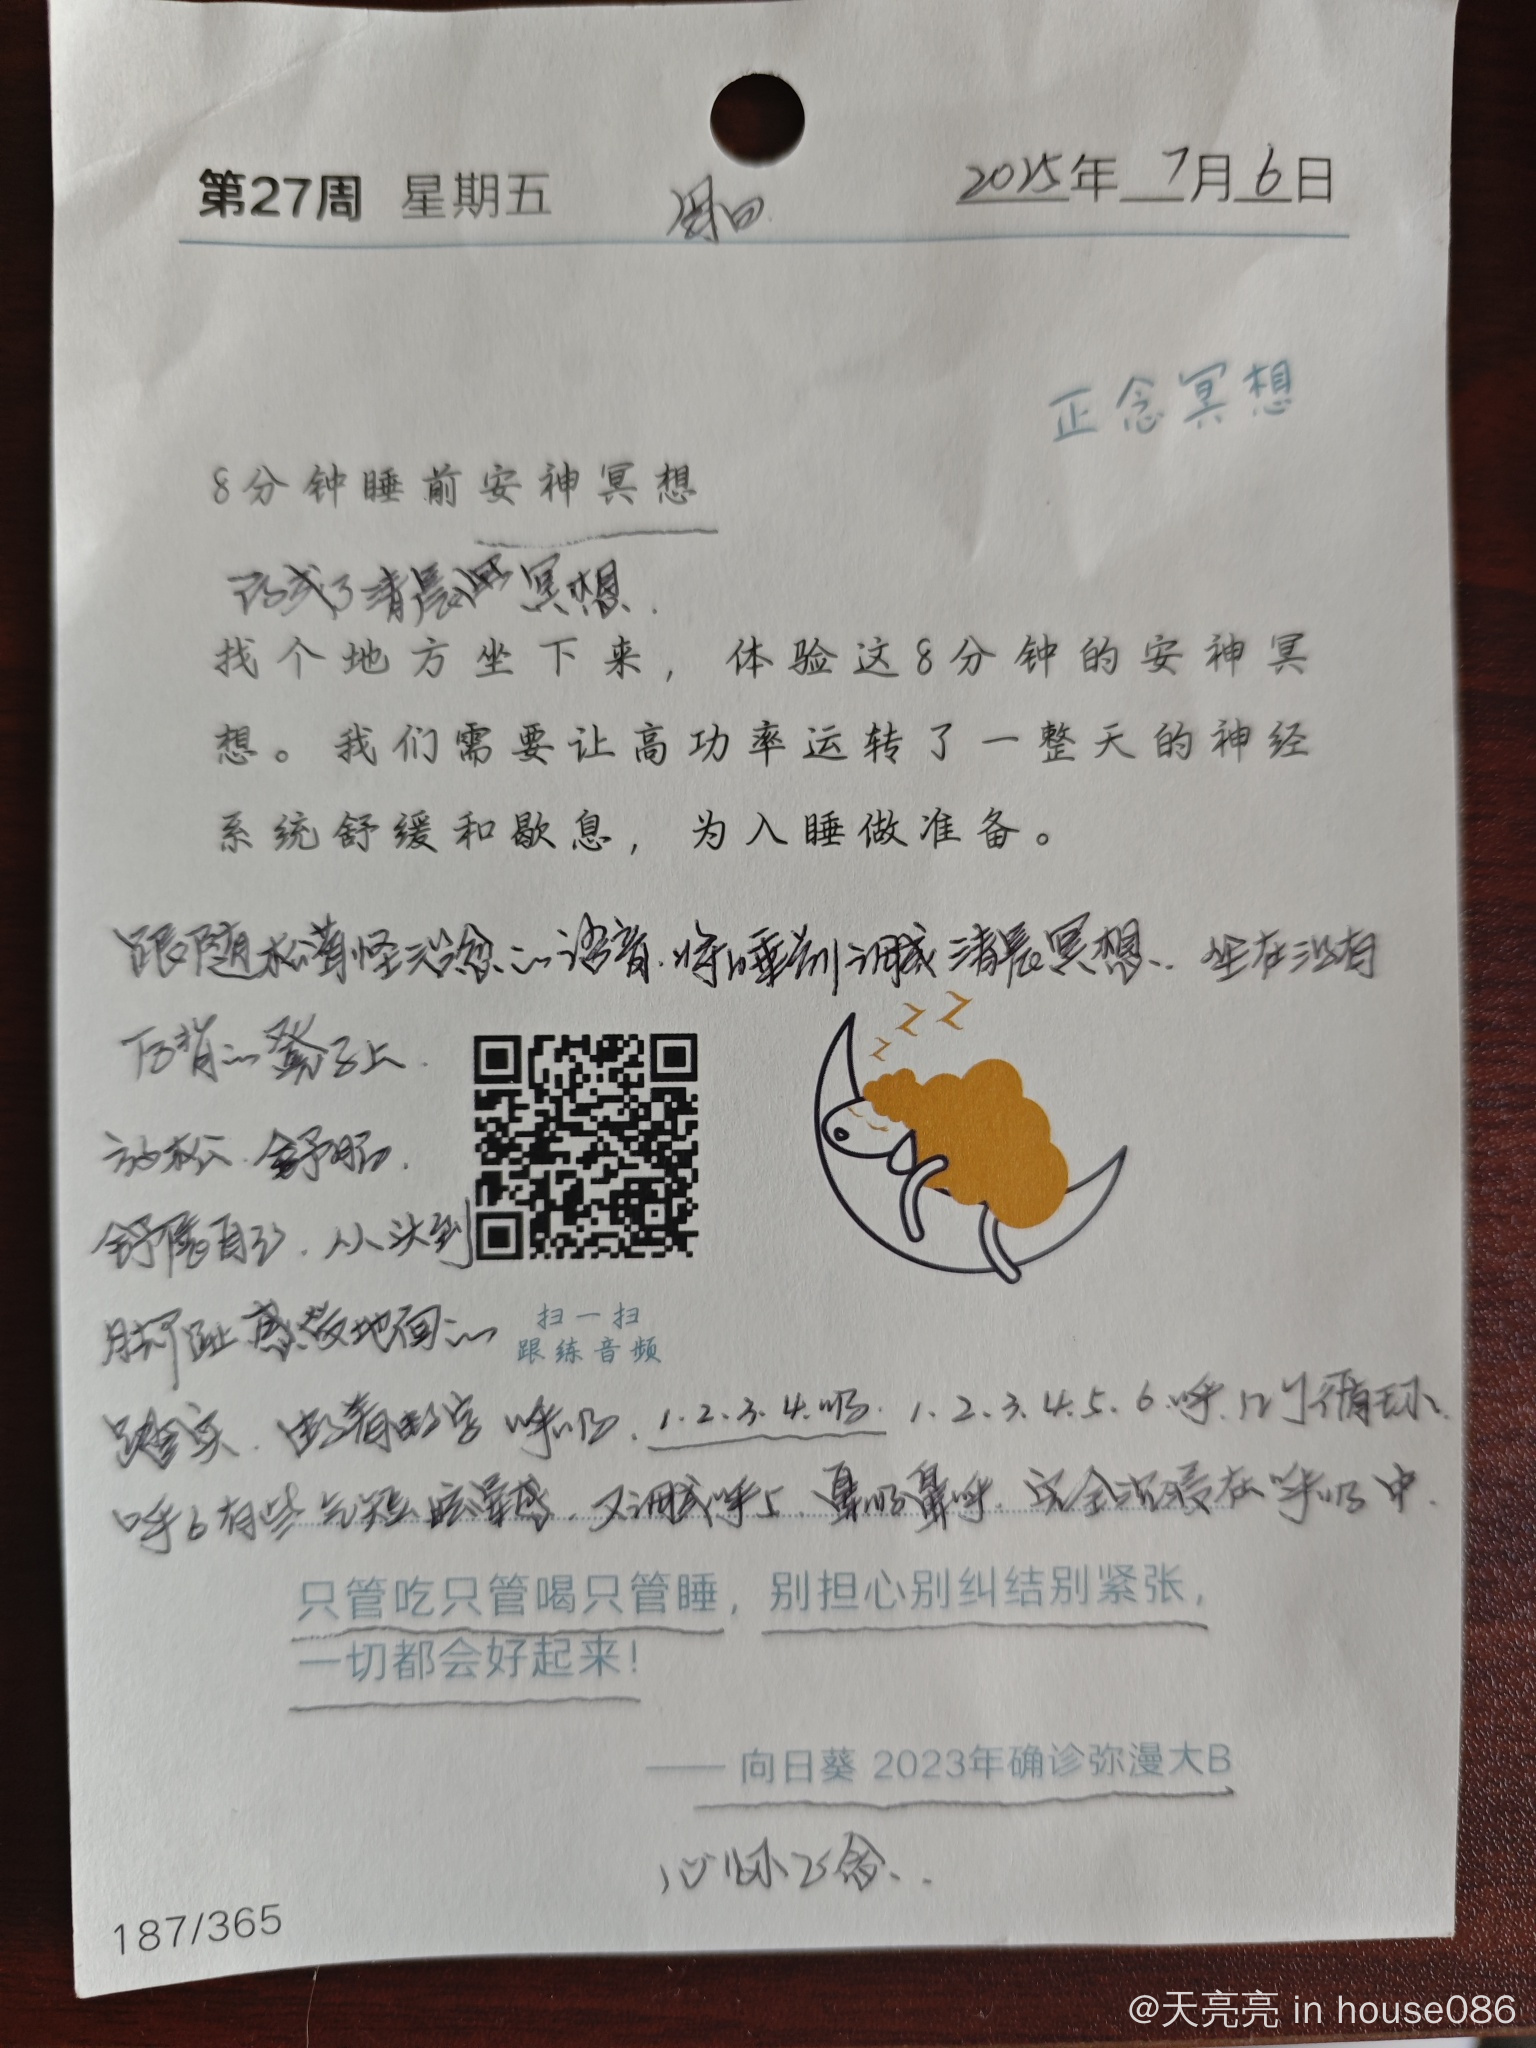 第27周 星期五 周日 2025年 7月6日
正念冥想
8分钟睡前安神冥想
改成了清晨 冥想.
找个地方坐下来，体验这8分钟的安神冥
想。我们需要让高功率运转了一整天的神经
系统舒缓和歇息，为入睡做准备。
跟随松 语音.将睡前调成清晨冥想. 坐在没有
凳子上.
放松.舒服.
舒 自己.从头到
脚趾 地面的
踏实. 数字 呼吸.1.2.3.4.吸. 1.2.3.4.5.6.呼. 循环.
呼6有些气短 .又调成呼5.鼻吸鼻呼.完全沉浸在呼吸中.
扫一扫
跟练音频
只管吃只管喝只管睡，别担心别纠结别紧张，
一切都会好起来！
—— 向日葵 2023年确诊弥漫大B
187/365
@天亮亮 in house086